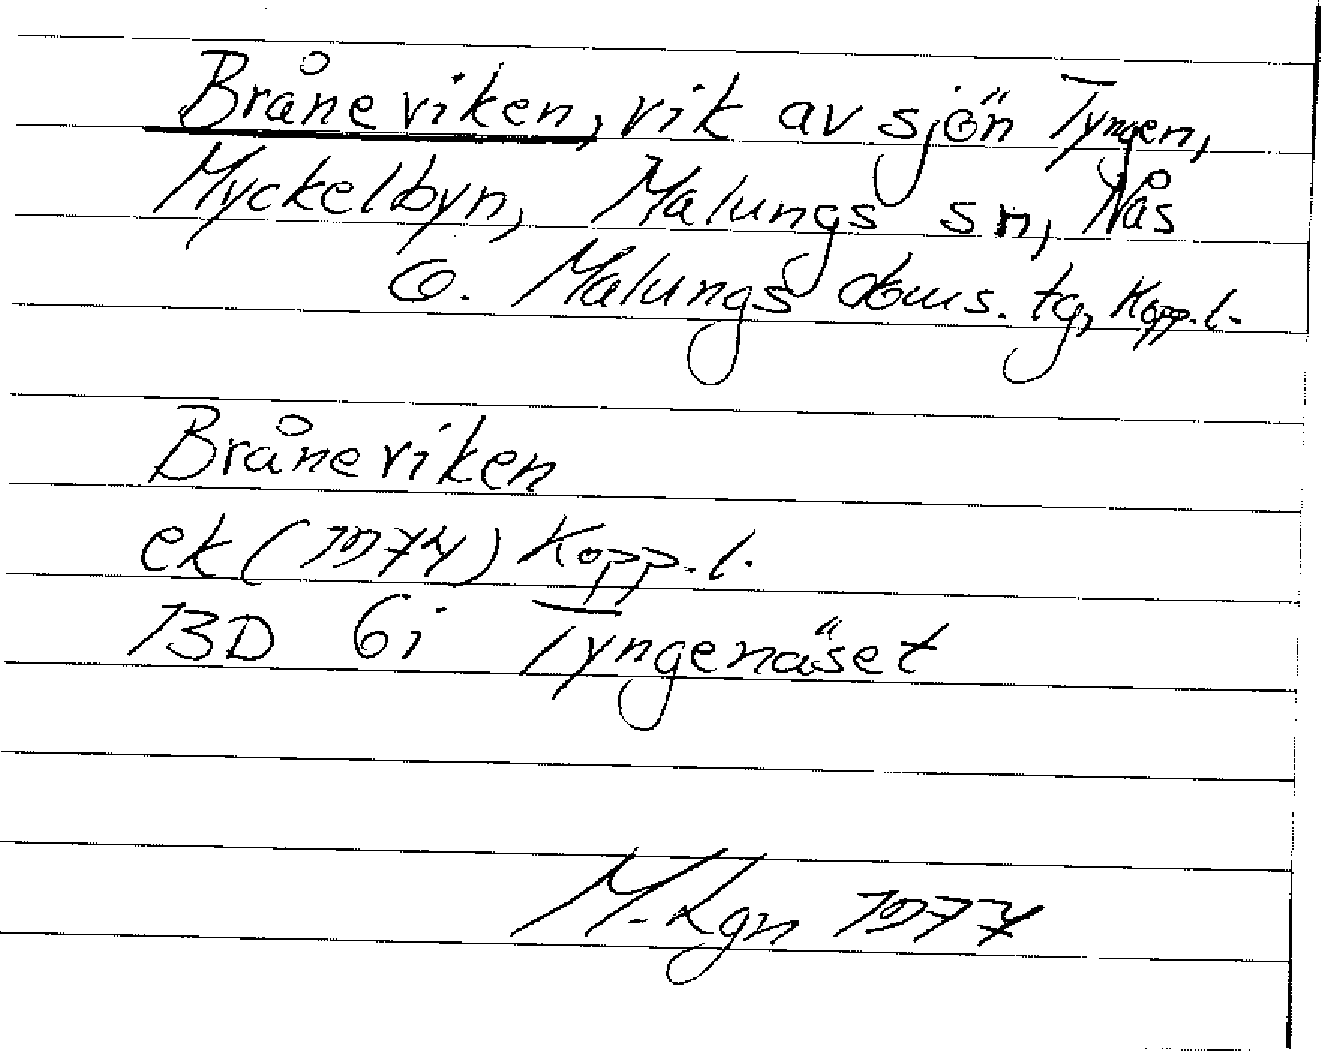 Bråneviken, vik av sjön Tyngen,
Myckelbyn, Malungs sn, Nås
o. Malungs doms. tg, Kopp. l.
Bråneviken
ek (1974) Kopp. l.
13D 6i Tyngenäset
M. Lgn 1977